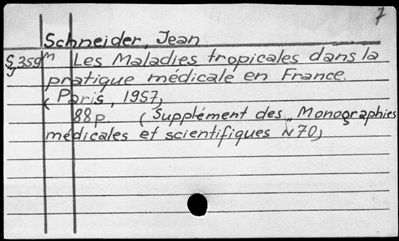 7
Schneider, Jean
Sg 359m Les Maladies tropicales dans la
pratique médicale en France.
(Paris, 1957,
88p. (Supplément des „Monographies
médicales et scientifiques N 70)